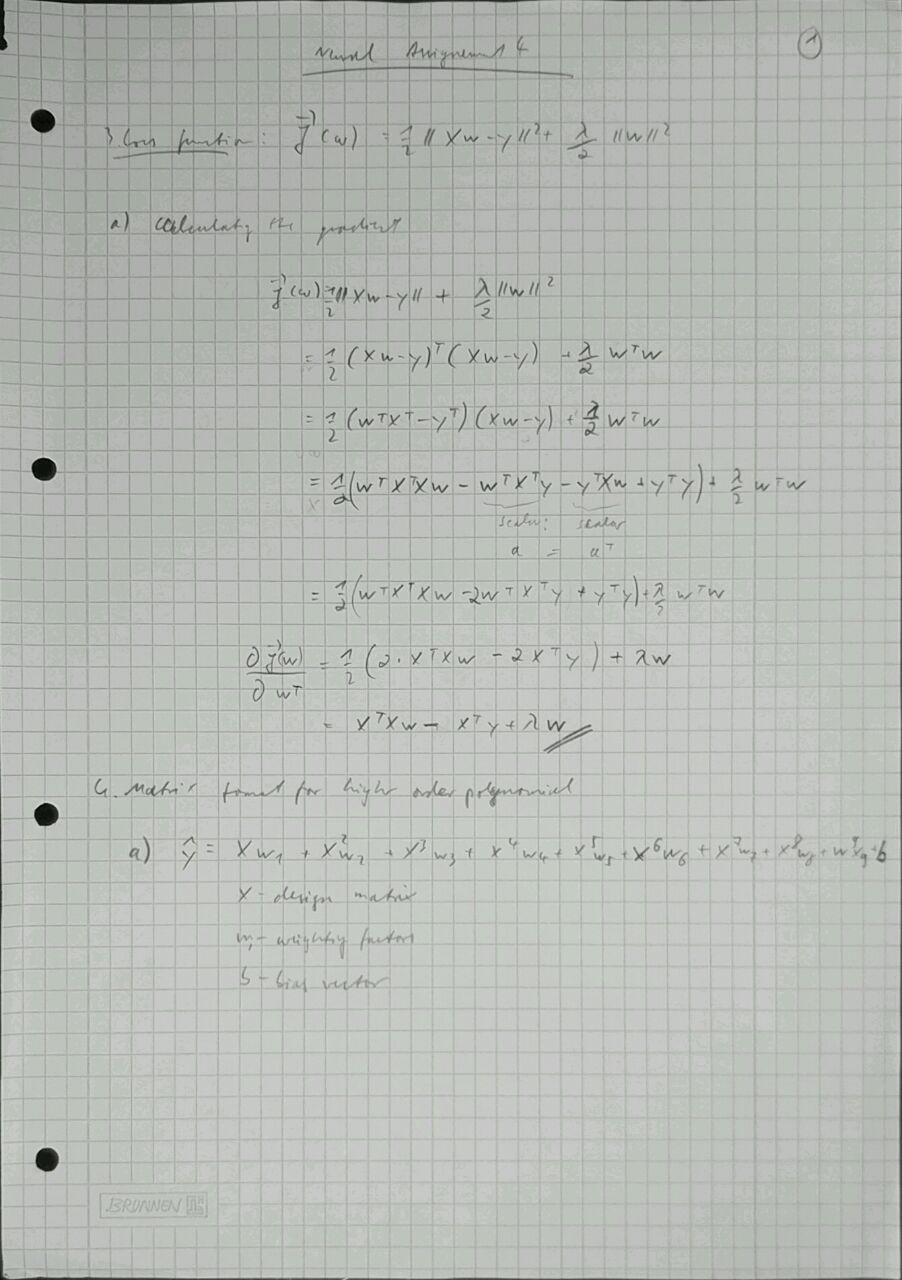 Neural Assignement 4
1
3 Loss function: J⃗(w) = 1/2 || Xw - y ||² + λ/2 ||w||²
a) calculating the gradient
J⃗(w) = 1/2 || Xw - y || + λ/2 ||w||²
= 1/2 (Xw - y)ᵀ (Xw - y) + λ/2 wᵀw
= 1/2 (wᵀXᵀ - yᵀ) (Xw - y) + λ/2 wᵀw
= 1/2 (wᵀXᵀXw - wᵀXᵀy - yᵀXw + yᵀy) + λ/2 wᵀw
scalar: scalar
a = aᵀ
= 1/2 (wᵀXᵀXw - 2wᵀXᵀy + yᵀy) + λ/2 wᵀw
∂J⃗(w)/∂wᵀ = 1/2 (2 · XᵀXw - 2Xᵀy) + λw
= XᵀXw - Xᵀy + λw
4. Matrix format for high order polynomial
a) ŷ = Xw₁ + X²w₂ + X³w₃ + X⁴w₄ + X⁵w₅ + X⁶w₆ + X⁷w₇ + X⁸w₈ + w⁹x₉ + b
X - design matrix
wᵢ - weighting factors
b - bias vector
BRUNNEN